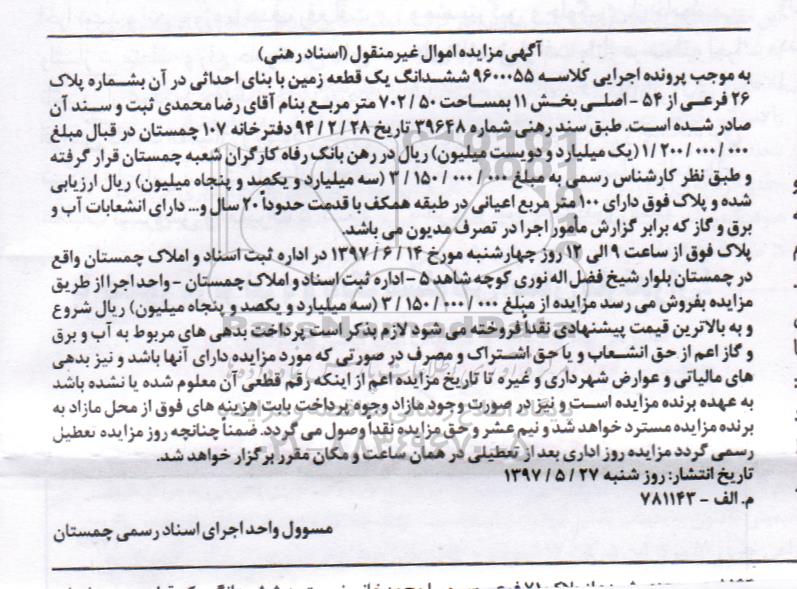 آگهی مزایده اموال غیر منقول (اسناد رهنی)
به موجب پرونده اجرایی کلاسه ۹۶۰۰۰۵۵ ششدانگ یک قطعه زمین با بنای احداثی در آن بشماره پلاک
۲۶ فرعی از ۵۴ - اصلی بخش ۱۱ بمساحت ۵۰ / ۷۰۲ متر مربع بنام آقای رضا محمدی ثبت و سند آن
صادر شیده است. طبق سند رهنی شماره ۳۹۶۴۸ تاریخ ۲۸ / ۲ / ۹۴ دفترخانه ۱۰۷ چمستان در قبال مبلغ
۰۰۰ / ۰۰۰ / ۱/۲۰۰ (یک میلیارد و دویست میلیون) ریال در رهن بانک رفاه کارگران شعبه چمستان قرار گرفته
و طبق نظر کارشناس رسمی به مبلغ ۰۰۰ / ۰۰۰ / ۱۵۰ / ۳ (سه میلیارد و یکصد و پنجاه میلیون) ریال ارزیابی
شده و پلاک فوق دارای ۱۰۰ متر مربع اعیانی در طبقه همکف با قدمت حدوداً ۲۰ سال و .. دارای انشعابات آب و
برق و گاز که برابر گزارش مامور اجرا در تصرف مدیون می باشد.
پلاک فوق از ساعت ۹ الی ۱۲ روز چهارشنبه مورخ ۱۴ / ۶ / ۱۳۹۷ در اداره ثبت اسناد و املاک چمستان واقع
در چمستان بلوار شیخ فضل اله نوری کوچه شاهد ۵ - اداره ثبت اسناد و املاک چمستان - واحد اجرا از طریق
مزایده بفروش می رسد مزایده از مبلغ ۰۰۰ / ۰۰۰ / ۱۵۰ / ۳ (سه میلیارد و یکصد و پنجاه میلیون) ریال شروع
و به بالاترین قیمت پیشنهادی نقداً فروخته می شود لازم بذکر است پرداخت بدهی های مربوط به آب و برق
و گاز اعم از حق انشعاب و یا حق اشتراک و مصرف در صورتی که مورد مزایده دارای آنها باشد و نیز بدهی
های مالیاتی و عوارض شهرداری و غیره تا تاریخ مزایده اعم از اینکه رقم قطعی آن معلوم شده یا نشده باشد
به عهده برنده مزایده است و نیز در صورت وجود مازاد وجوه پرداختی بابت هزینه های فوق از محل مازاد به
برنده مزایده مسترد خواهد شد و نیم عشر و حق مزایده نقداً وصول می گردد. ضمناً چنانچه روز مزایده تعطیل
رسمی گردد مزایده روز اداری بعد از تعطیلی در همان ساعت و مکان مقرر برگزار خواهد شد.
تاریخ انتشار: روز شنبه ۲۷ / ۵ / ۱۳۹۷
م. الف - ۷۸۱۱۴۳
مسوول واحد اجرای اسناد رسمی چمستان